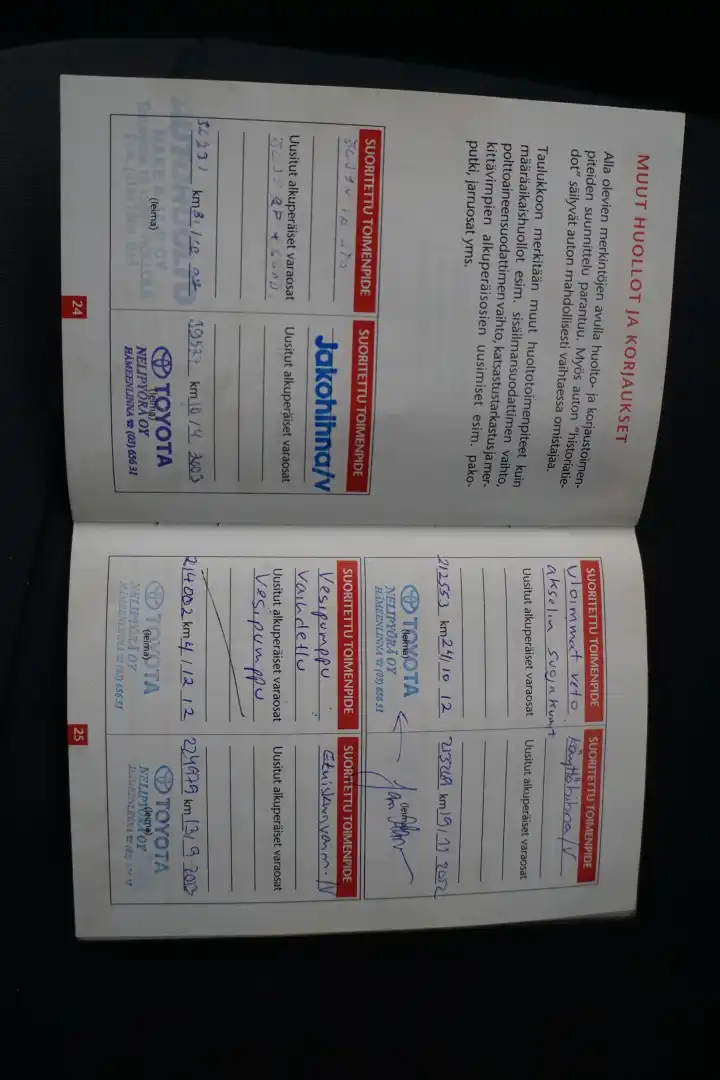 MUUT HUOLLOT JA KORJAUKSET
Alla olevien merkintöjen avulla huolto- ja korjaustoimen-
piteiden suunnittelu parantuu. Myös auton "historiatie-
dot" säilyvät auton mahdollisesti vaihtaessa omistajaa.
Taulukkoon merkitään muut huoltotoimenpiteet kuin
määräaikaishuollot esim. sisäilmansuodattimen vaihto,
polttoaineensuodattimen vaihto, katsastustarkastus ja mer-
kittävimpien alkuperäisosien uusimiset esim. pako-
putki, jarruosat yms.
SUORITETTU TOIMENPIDE
Uusitut alkuperäiset varaosat
km 31/10
(leima)
SUORITETTU TOIMENPIDE
Jakohihna/v
Uusitut alkuperäiset varaosat
km 10/9 2003
(leima)
TOYOTA
NELIPYÖRÄ OY
HÄMEENLINNA ☎ (03) 656 31
24
SUORITETTU TOIMENPIDE
Uloimmat veto
akselin suojakumit
Uusitut alkuperäiset varaosat
212553 km 24/10 12
(leima)
TOYOTA
NELIPYÖRÄ OY
HÄMEENLINNA ☎ (03) 656 31
SUORITETTU TOIMENPIDE
Käyttöhihna/V
Uusitut alkuperäiset varaosat
213269 km 19/11 2012
(leima)
SUORITETTU TOIMENPIDE
Vesipumppu
vaihdettu
Uusitut alkuperäiset varaosat
Vesipumppu
214002 km 4/12 12
(leima)
TOYOTA
NELIPYÖRÄ OY
HÄMEENLINNA ☎ (03) 656 31
SUORITETTU TOIMENPIDE
Uusitut alkuperäiset varaosat
224979 km 13/9 2013
(leima)
TOYOTA
NELIPYÖRÄ OY
HÄMEENLINNA ☎ (03) 656 31
25